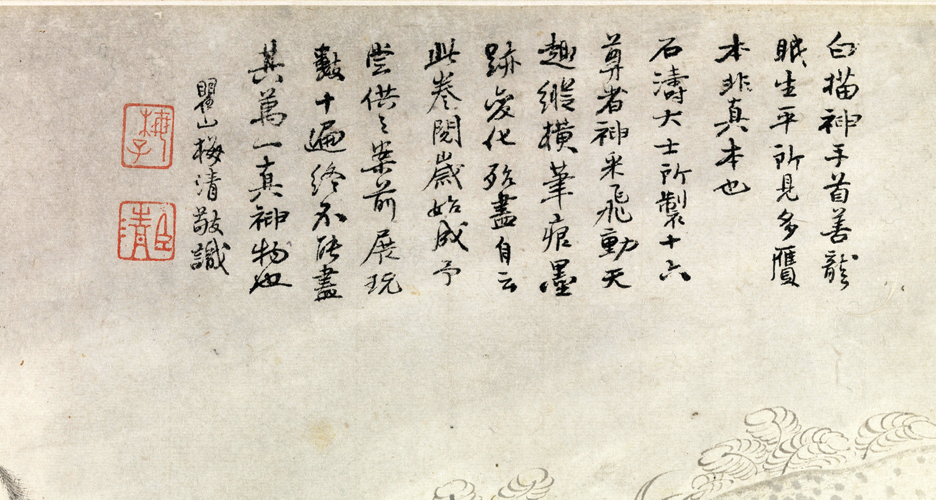 白描神手首善龍
眠生平所見多贋
本非真本也
石濤大士所製十六
尊者神采飛動天
趣縱横筆痕墨
跡變化殆盡自云
此卷閱歲始成予
嘗供之案前展玩
數十遍終不能盡
其萬一真神物也
瞿山梅清敬識
梅子
臣清